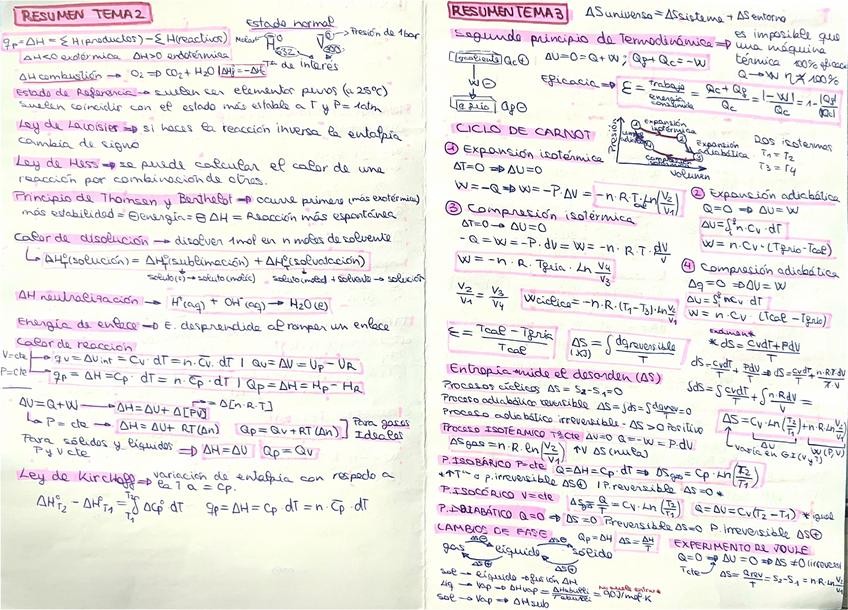 RESUMEN TEMA 2
Estado normal
qp = ΔH = Σ H(productos) - Σ H(reactivos)
Molar H̄⁰ 298 V̄⁰ Presión de 1 bar
Tª de interés
ΔH<0 exotérmica ΔH>0 endotérmica
ΔH combustión → O₂ → CO₂ + H₂O
Estado de Referencia → suelen ser elementos puros (a 25ºC)
suelen coincidir con el estado más estable a T y P = 1atm
Ley de Lavoisier → si haces la reacción inversa la entalpia
cambia de signo
Ley de Hess → se puede calcular el calor de una
reacción por combinación de otras.
Principio de Thomsen y Berthelot → ocurre primero (más exotérmica)
más estabilidad = ⊖ energía = ⊖ ΔH = Reacción más espontánea
Calor de disolución → disolver 1mol en n moles de solvente
↳ ΔH(solución) = ΔH(sublimación) + ΔH(solvatación)
ΔH neutralización → H⁺(aq) + OH⁻(aq) → H₂O(l)
Energía de enlace → E. desprendida al romper un enlace
Calor de reacción
V=cte → qv = ΔVint = Cv · dT = n · C̄v · dT | Qv = ΔU = Up - UR
P=cte → qp = ΔH = Cp · dT = n · C̄p · dT | Qp = ΔH = Hp - HR
ΔU = Q + W → ΔH = ΔU + Δ[PV] → Δ[n·R·T]
↳ P = cte → ΔH = ΔU + RT(Δn) Qp = Qv + RT(Δn) Para gases Ideales
Para sólidos y líquidos ⇒ ΔH = ΔU Qp = Qv
P y V cte
Ley de Kirchoff ⇒ variación de entalpia con respecto a
la T a = Cp.
ΔH°T2 - ΔH°T1 = ∫ ΔCp° dT qp = ΔH = Cp · dT = n · C̄p · dT
RESUMEN TEMA 3
ΔS universo = ΔS sistema + ΔS entorno
Segundo principio de Termodinámica ⇒ es imposible que
una máquina
térmica 100% eficacia
Q → W 100%
Qc⊕ ΔU = Q + W ; Qf + Qc = -W
W⊖
fría Qf⊖
Eficacia ⇒ ε = Trabajo / energía = (Qc + Qf)/Qc = |-W|/Qc = 1 - |Qf|/|Qc|
CICLO DE CARNOT
Presión
expansión isotérmica
Expansión adiabática
compresión
Volumen
Dos isotermas
T₁ = T₂
T₃ = T₄
① Expansión isotérmica
ΔT = 0 ⇒ ΔU = 0
W = -Q ⇒ W = -P·ΔV = -n·R·T·Ln(V₂/V₁)
② Expansión adiabática
Q = 0 ⇒ ΔU = W
ΔU = ∫ n·Cv·dT
W = n·Cv·(Tfrio - Tcal)
③ Compresión isotérmica
ΔT = 0 → ΔU = 0
-Q = W = -P·dV = W = -n·R·T·dV/V
W = -n·R·Tfria·Ln V₄/V₃
④ Compresión adiabática
Δq = 0 ⇒ ΔU = W
ΔU = ∫ nCv dT
W = n·Cv·(Tcal - Tfrío)
V₂/V₁ = V₃/V₄ W cíclico = -n·R·(T₁ - T₃)·Ln V₂/V₁
ε = (Tcal - Tfria)/Tcal ΔS = ∫ dq reversible/T
* dS = (CvdT + PdV)/T
dS = CvdT/T + PdV/T ⇒ dS = CvdT/T + n·R·T·dV/T·V
∫dS = ∫ CvdT/T + ∫ n·R·dV/V =
Entropía → mide el desorden (ΔS)
Procesos cíclicos ΔS = S₂ - S₁ = 0
Proceso adiabático reversible ΔS = ∫dS = ∫ dqrev/T = 0
Proceso adiabático irreversible → ΔS > 0 Positivo
ΔS = Cv·Ln(T₂/T₁) + n·R·Ln V₂/V₁
PROCESO ISOTÉRMICO T=cte ΔU = 0 Q = -W = P·dV
ΔSgas = n·R·ln(V₂/V₁) ↑V ΔS (nula)
P. ISOBÁRICO P=cte Q = ΔH = Cp·dT ⇒ ΔSgas = Cp·Ln(T₂/T₁)
* ↑Tª o P. irreversible ΔS⊕ | P. reversible ΔS = 0 *
P. ISOCÓRICO V=cte ΔSgas = Q/T = Cv·Ln(T₂/T₁) Q = ΔU = Cv(T₂ - T₁) * igual
P. ADIABÁTICO Q=0 ⇒ ΔS = 0 P.reversible ΔS = 0 P. irreversible ΔS⊕
CAMBIOS DE FASE Qp = ΔH ΔS = ΔH/T
gas líquido sólido
ΔS⊖ ΔS⊖
ΔS⊕ ΔS⊕
sol → líquido → fusión ΔH
Liq → Vap → ΔHvap = ΔHebull/Tebull = 90 J/mol K
sol → vap → ΔHsub
EXPERIMENTO DE JOULE
Q = 0 ⇒ ΔU = 0 ⇒ ΔS ≠ 0 (irreversi
Tcte ΔS = Qrev/T = S₂ - S₁ = n·R·Ln V₂/V₁